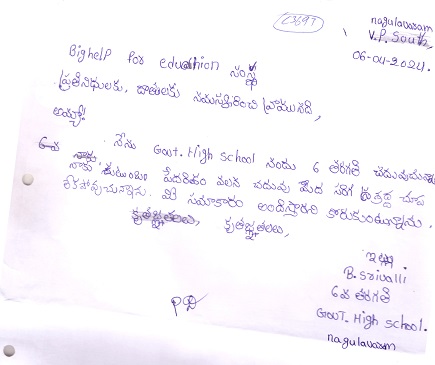 nagulavaram
V.P. South,
06-04-2024.
Bighelp for education సంస్థ
ప్రతినిధులకు, దాతలకు నమస్కరించి వ్రాయునది,
అయ్యా!
నేను Govt. High school నందు 6 తరగతి చదువుచున్నాను
నాకు కుటుంబ పేదరికం వలన చదువు మీద సరిగ శ్రద్ద చూప
లేకపోవుచున్నాను. మీ సహకారం అందిస్తారని కోరుకుంటున్నాను.
కృతజ్ఞతలు, కృతజ్ఞతలు,
ఇట్లు.
B. Srivalli
6వ తరగతి
GovT. High school.
nagulavaram